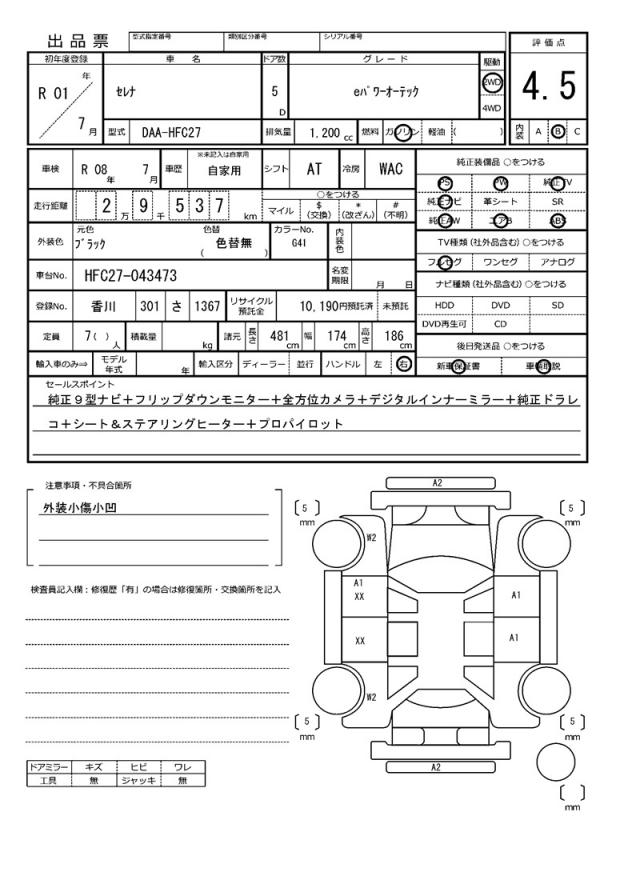 出品票 型式指定番号 類別区分番号 シリアル番号 評価点
初年度登録 車名 ドア数 グレード 駆動
R 01 年 7 月 セレナ 5 D eパワーオーテック 2WD 4WD 4.5
型式 DAA-HFC27 排気量 1.200 cc 燃料 ガソリン 軽油 ( ) 内装 A B C
車検 R 08 年 7 月 車歴 ※未記入は自家用 自家用 シフト AT 冷房 WAC
走行距離 2 万 9 千 5 3 7 km ○をつける マイル $ (交換) * (改ざん) # (不明)
外装色 元色 ブラック 色替 色替無 ( ) カラーNo. G41 内装色
車台No. HFC27-043473 名変期限 月 日
登録No. 香川 301 さ 1367 リサイクル預託金 10,190円預託済 未預託
定員 7( ) 人 積載量 kg 諸元 長さ 481 cm 幅 174 cm 高さ 186 cm
輸入車のみ⇒ モデル年式 年 輸入区分 ディーラー 並行 ハンドル 左 右
純正装備品 ○をつける
PS PW 純正TV
純正ナビ 革シート SR
純正AW エアB ABS
TV種類 (社外品含む) ○をつける
フルセグ ワンセグ アナログ
ナビ種類 (社外品含む) ○をつける
HDD DVD SD
DVD再生可 CD
後日発送品 ○をつける
新車保証書 車輌取説
セールスポイント
純正9型ナビ+フリップダウンモニター+全方位カメラ+デジタルインナーミラー+純正ドラレ
コ+シート&ステアリングヒーター+プロパイロット
注意事項・不具合箇所
外装小傷小凹
検査員記入欄:修復歴「有」の場合は修復箇所・交換箇所を記入
ドアミラー キズ ヒビ ワレ
工具 無 ジャッキ 無
A2
5 mm
5 mm
W2
A1
XX
A1
XX
A1
W2
5 mm
5 mm
A2
mm